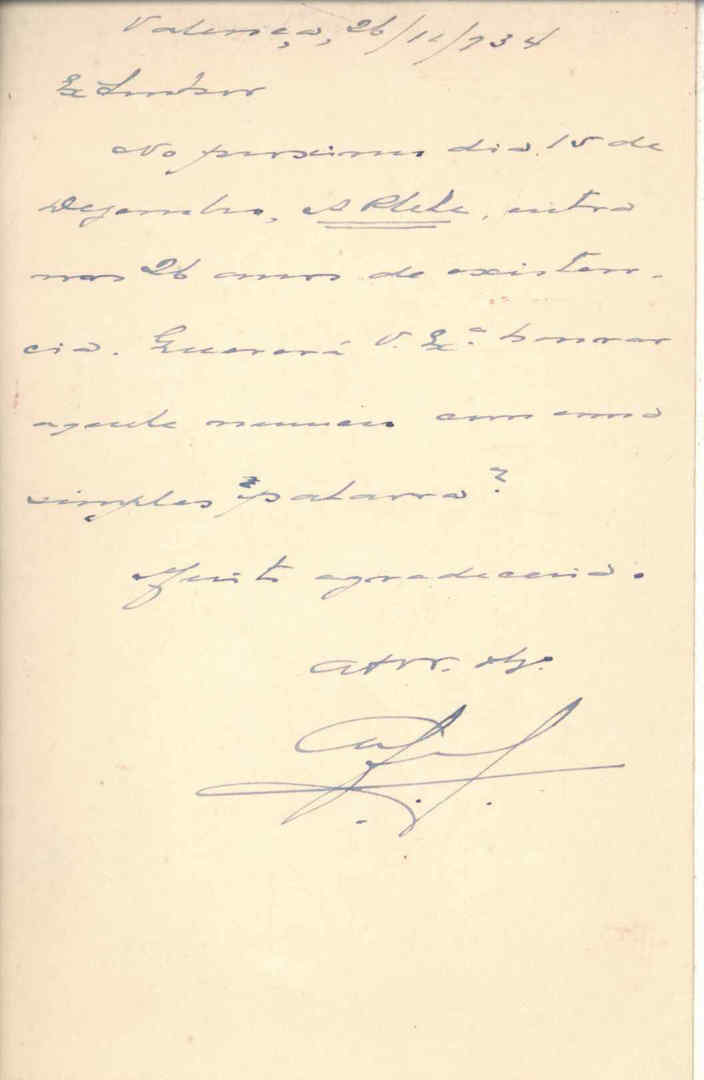 Valença, 26/11/934
Ex Senhor
No proximo dia 15 de
Dezembro, A Plebe, entra
nos 26 anos de existen-
cia. Quererá V. Ex.ª honrar
aquele numero com uma
simples "palavra"?
Muito agradeceria.